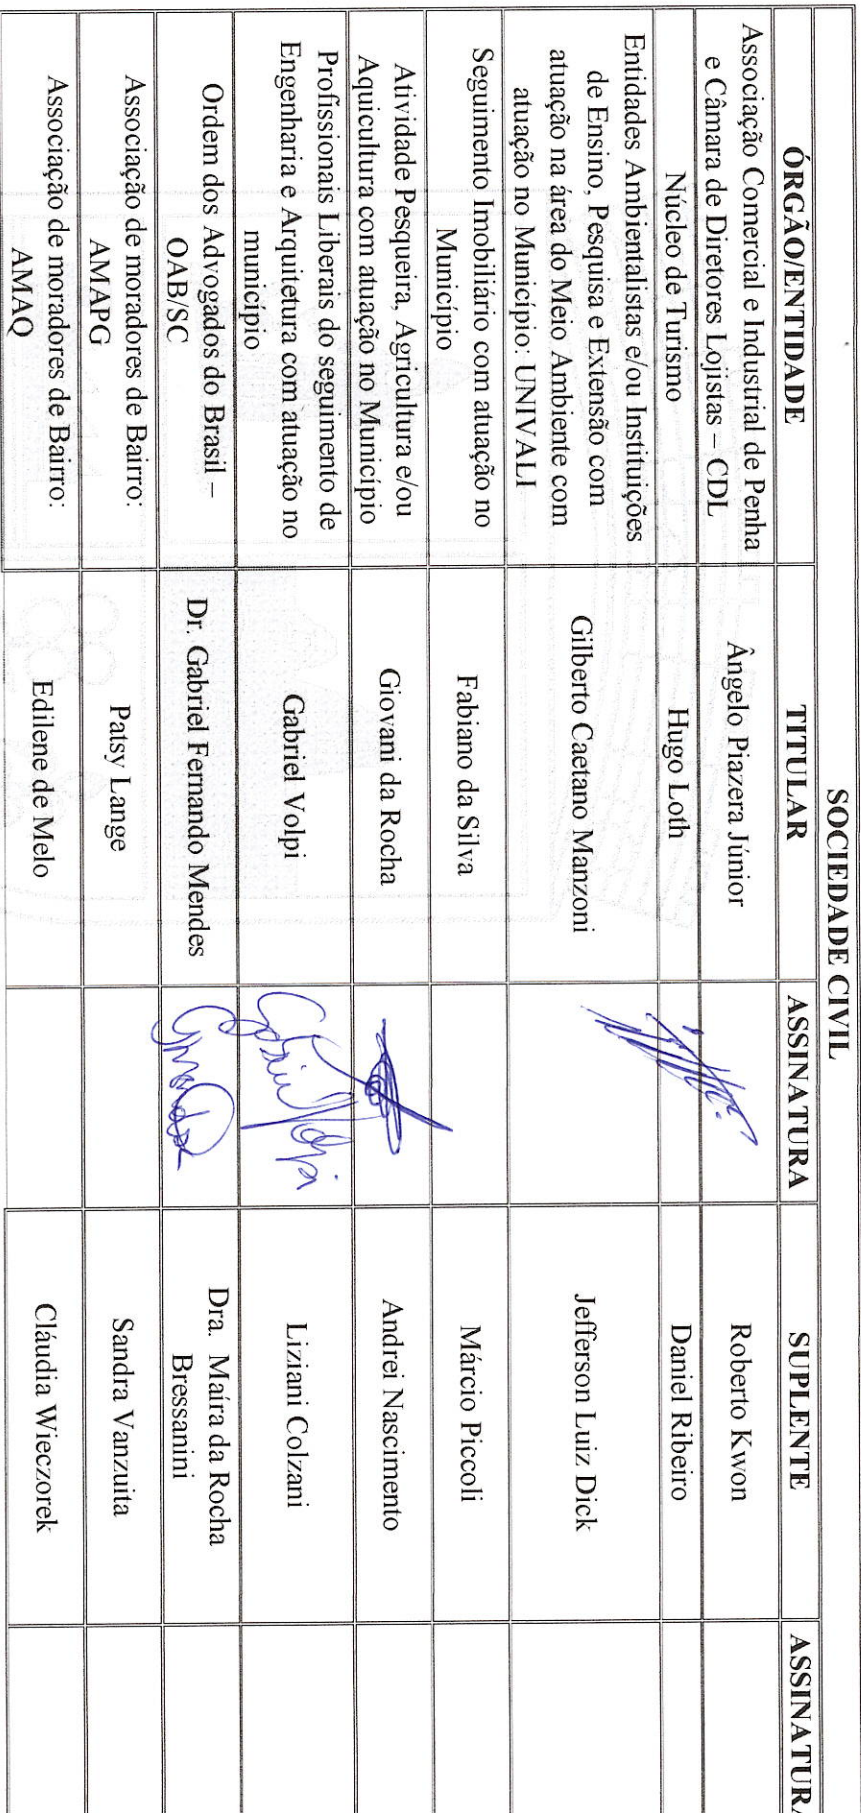 SOCIEDADE CIVIL
ÓRGÃO/ENTIDADE TITULAR ASSINATURA SUPLENTE ASSINATURA
Associação Comercial e Industrial de Penha
e Câmara de Diretores Lojistas – CDL
Ângelo Piazera Júnior
Roberto Kwon
Núcleo de Turismo
Hugo Loth
Daniel Ribeiro
Entidades Ambientalistas e/ou Instituições
de Ensino, Pesquisa e Extensão com
atuação na área do Meio Ambiente com
atuação no Município: UNIVALI
Gilberto Caetano Manzoni
Jefferson Luiz Dick
Seguimento Imobiliário com atuação no
Município
Fabiano da Silva
Márcio Piccoli
Atividade Pesqueira, Agricultura e/ou
Aquicultura com atuação no Município
Giovani da Rocha
Andrei Nascimento
Profissionais Liberais do seguimento de
Engenharia e Arquitetura com atuação no
município
Gabriel Volpi
Gabriel Volpi
Liziani Colzani
Ordem dos Advogados do Brasil –
OAB/SC
Dr. Gabriel Fernando Mendes
Dra. Maíra da Rocha
Bressanini
Associação de moradores de Bairro:
AMAPG
Patsy Lange
Sandra Vanzuita
Associação de moradores de Bairro:
AMAQ
Edilene de Melo
Cláudia Wieczorek